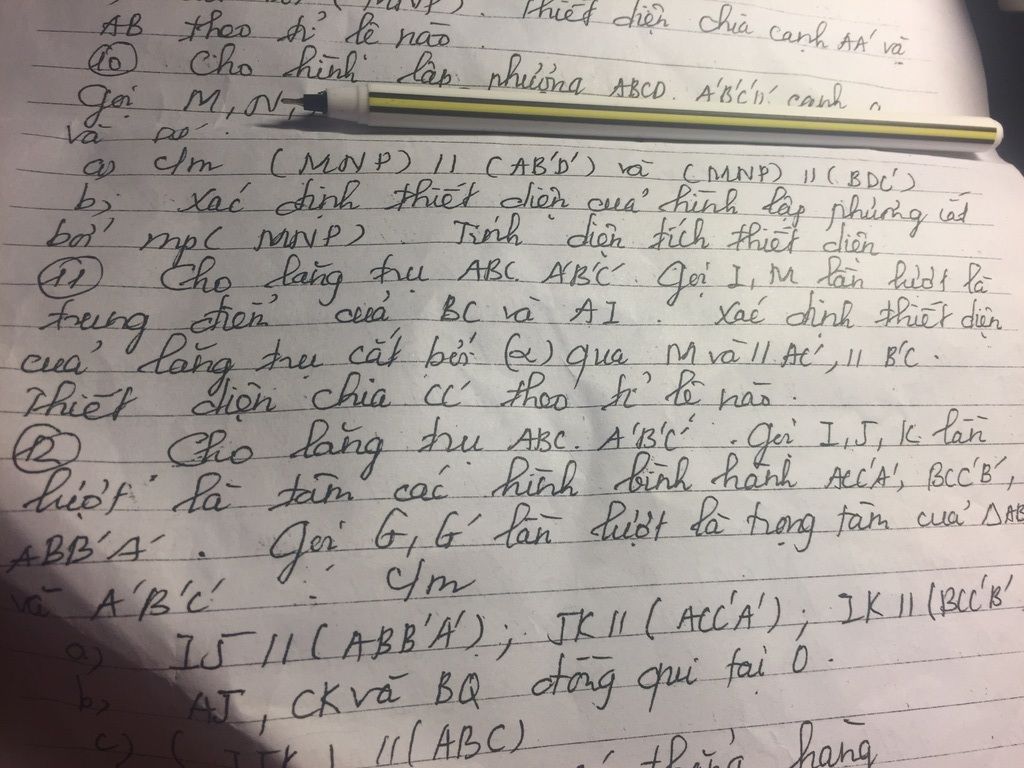 (MNP). Thiết diện chia cạnh AA' và
AB theo tỉ lệ nào.
⑩ Cho hình lập phương ABCD. A'B'C'D' cạnh a
Gọi M, N,
và
a) c/m (MNP) // (AB'D') và (MNP) // (BDC')
b, xác định thiết diện của hình lập phương cắt
bởi mp( MNP). Tính diện tích thiết diện
⑪ Cho lăng trụ ABC A'B'C'. Gọi I, M lần lượt là
trung điểm của BC và AI. xác định thiết diện
của lăng trụ cắt bởi (α) qua M và // AC', // B'C.
Thiết diện chia CC' theo tỉ lệ nào.
⑫ Cho lăng trụ ABC. A'B'C'. Gọi I, J, K lần
lượt là tâm các hình bình hành ACC'A', BCC'B',
ABB'A'. Gọi G, G' lần lượt là trọng tâm của ΔAB
và A'B'C' : c/m
a) IJ // (ABB'A'); JK // (ACC'A'); IK // (BCC'B'
b, AJ, CK và BQ đồng qui tại O.
c) (IJK) // (ABC)
thẳng hàng